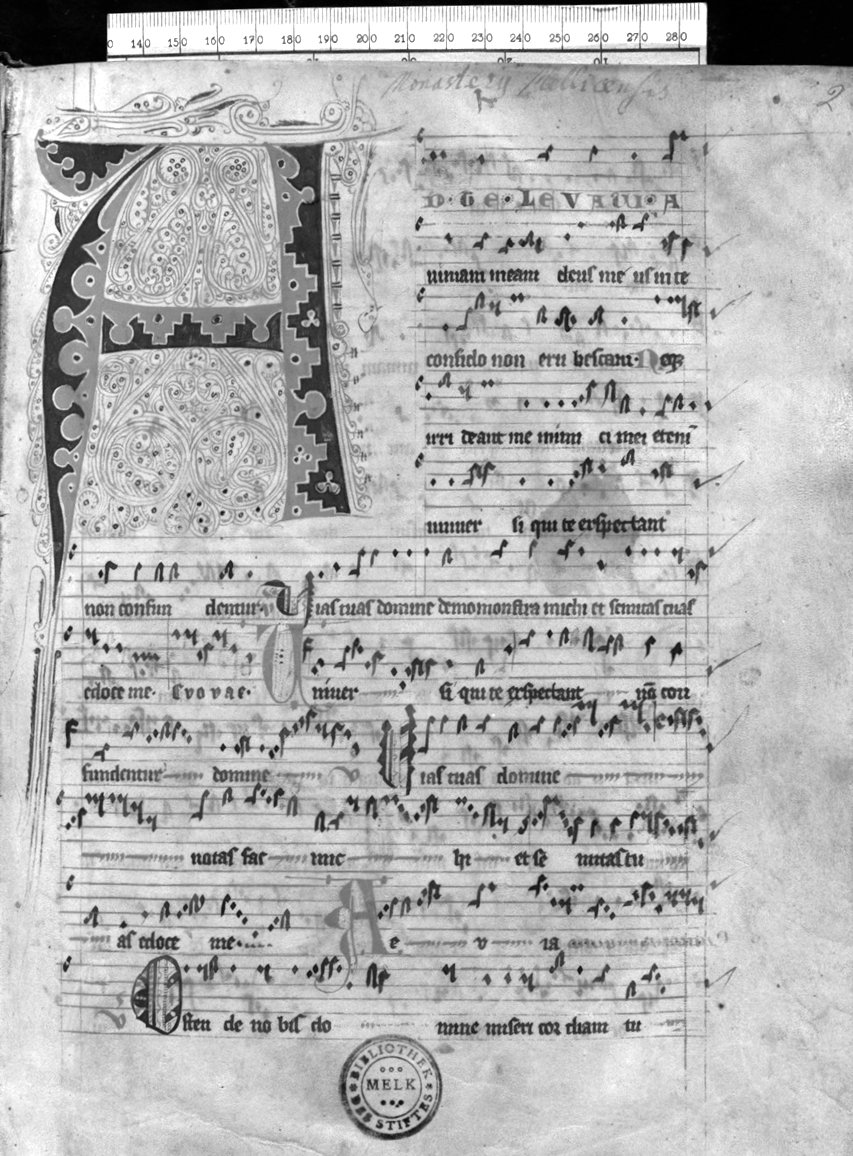 130 140 150 160 170 180 190 200 210 220 230 240 250 260 270 280
Monasterij Mellicensis
2
A
D·TE·LEVAVI·A
nimam meam deus me us in te
confido non eru bescam· Neq3
irri deant me inimi ci mei eteni
univer si qui te exspectant
non confun dentur· Vias tuas domine demomonstra michi et semitas tuas
edoce me· Evovae· Univer si qui te exspectant nō con
fundentur domine V Vias tuas domine
notas fac mic hi et se mitas tu
as edoce me· Ae v ia
Osten de no bis do mine miseri cor diam tu
BIBLIOTHEK
MELK
DES STIFTES